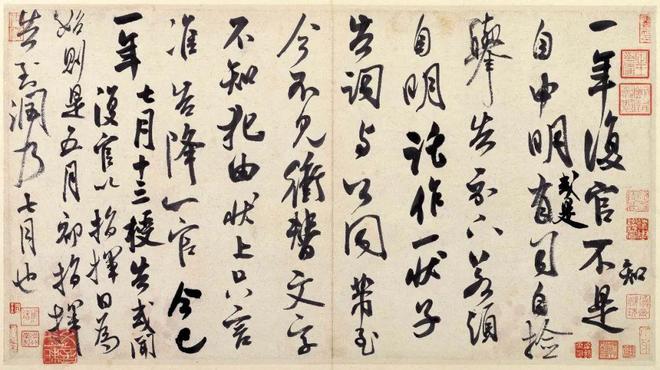 一年復官不是
知
自申明有司自檢
或是
舉告示下若須
自明託作一狀子
告調与公同
今不見衝替文字
不知犯由狀上只言
准告降一官今已
一年七月十三授告或聞
復官以指揮日為
始則是五月初指揮
告到潤乃七月也